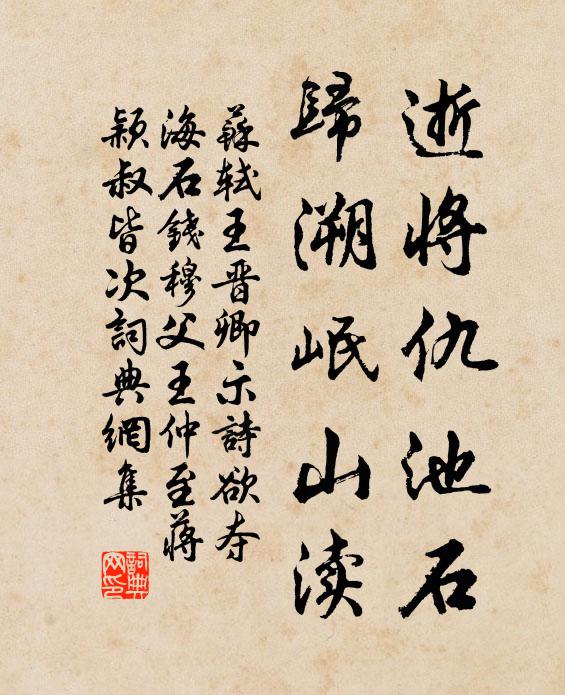 逝將仇池石
歸溯岷山渎
蘇軾王晉卿示詩欲夺
海石錢穆父王仲至蔣
穎叔皆次詞典網集
詞典網印